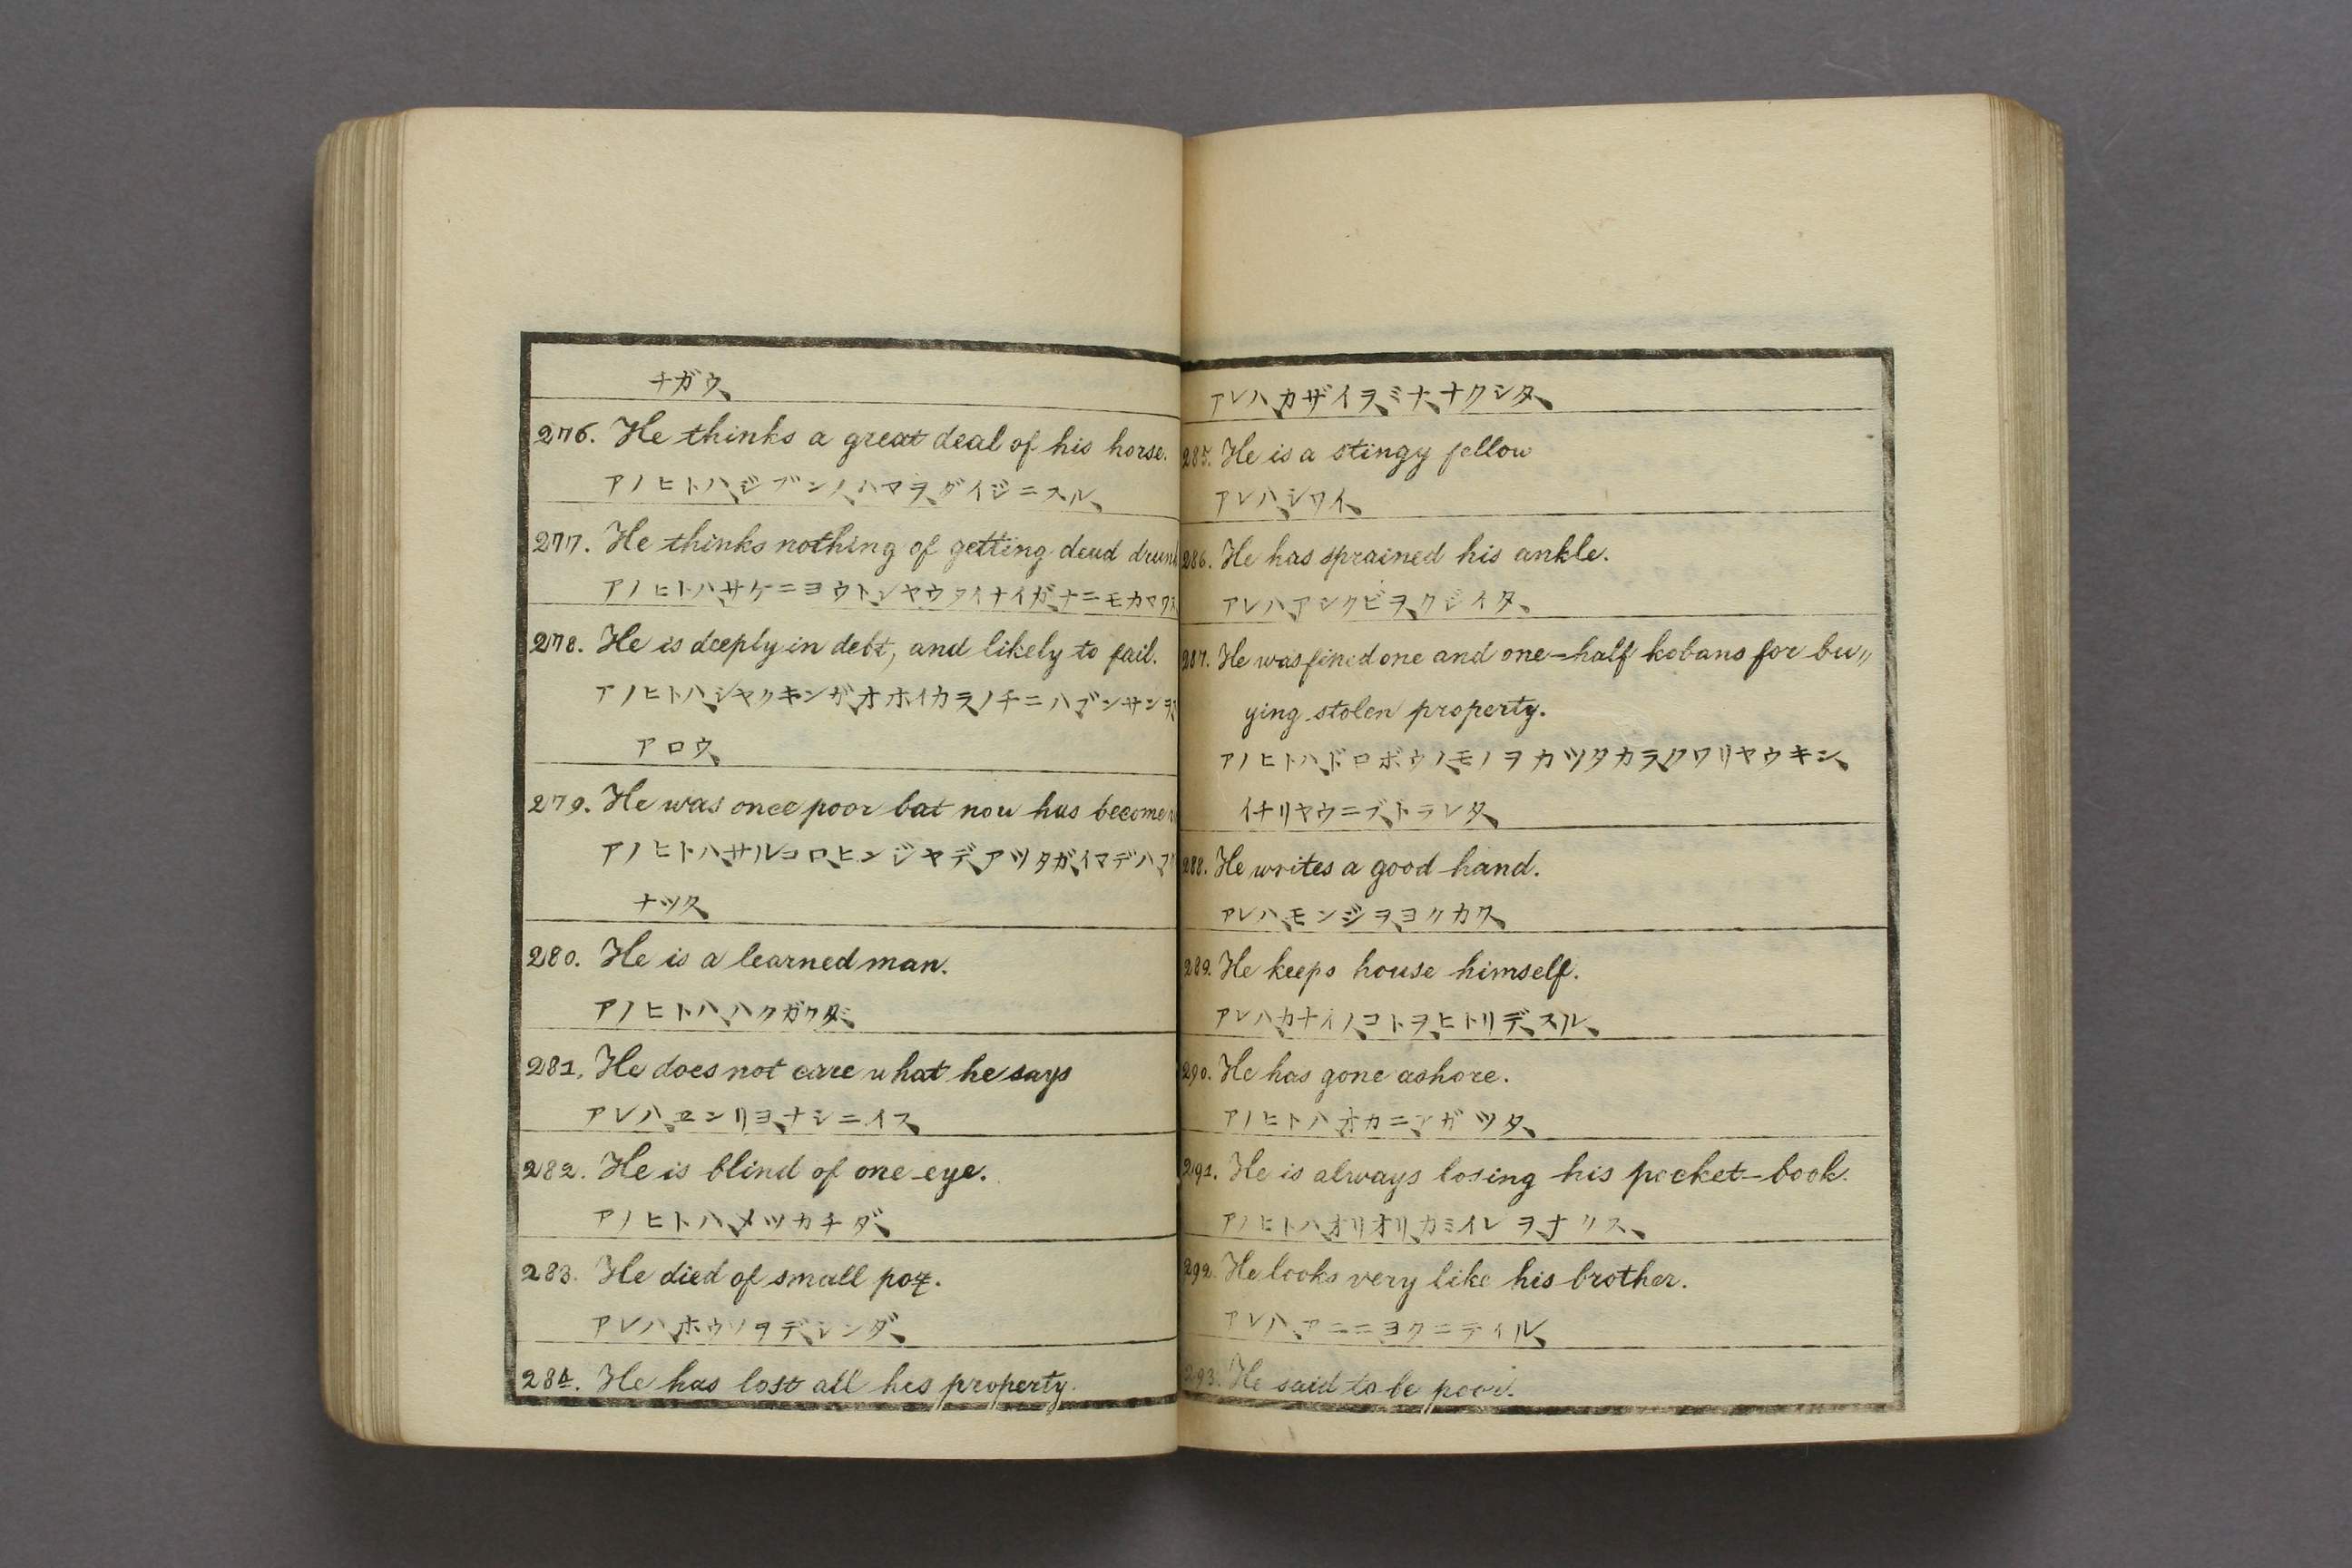 チガウ、
276. He thinks a great deal of his horse.
アノヒトハ、ジブンノ、ハマヲ、ダイジニスル、
277. He thinks nothing of getting dead
アノヒトハ、サケニヨウトシヤウタイナイガ、ナニモカマワ
278. He is deeply in debt, and likely to fail.
アノヒトハ、シヤクキンガ、オホイカラ、ノチニハブンサンヲ
アロウ、
279. He was once poor bat now has become
アノヒトハ、サルコロ、ヒンジヤデ、アツタガ、イマデハ
ナツタ、
280. He is a learned man.
アノヒトハ、ハクガクダ、
281. He does not care what he says
アレハ、エンリヨ、ナシニイフ、
282. He is blind of one-eye.
アノヒトハ、メツカチダ、
283. He died of small pox.
アレハ、ホウソヲデ、シンダ、
284. He has lost all his property.
アレハ、カザイヲ、ミナ、ナクシタ、
285. He is a stingy fellow
アレハ、シワイ、
286. He has sprained his ankle.
アレハ、アシクビヲ、クジイタ、
287. He was fined one and one=half kobans for bu〃
ying stolen property.
アノヒトハ、ドロボウノ、モノヲカツタカラ、クワリヤウキン、
イチリヤウニブ、トラレタ、
288. He writes a good hand.
アレハ、モンジヲ、ヨクカク、
289. He keeps house himself.
アレハ、カナイノ、コトヲ、ヒトリデ、スル、
290. He has gone ashore.
アノヒトハ、オカニアガツタ、
291. He is always losing his pocket=book.
アノヒトハ、オリオリ、カミイレヲ、ナクス、
292. He looks very like his brother.
アレハ、アニニヨクニテイル、
293. He said to be poor.